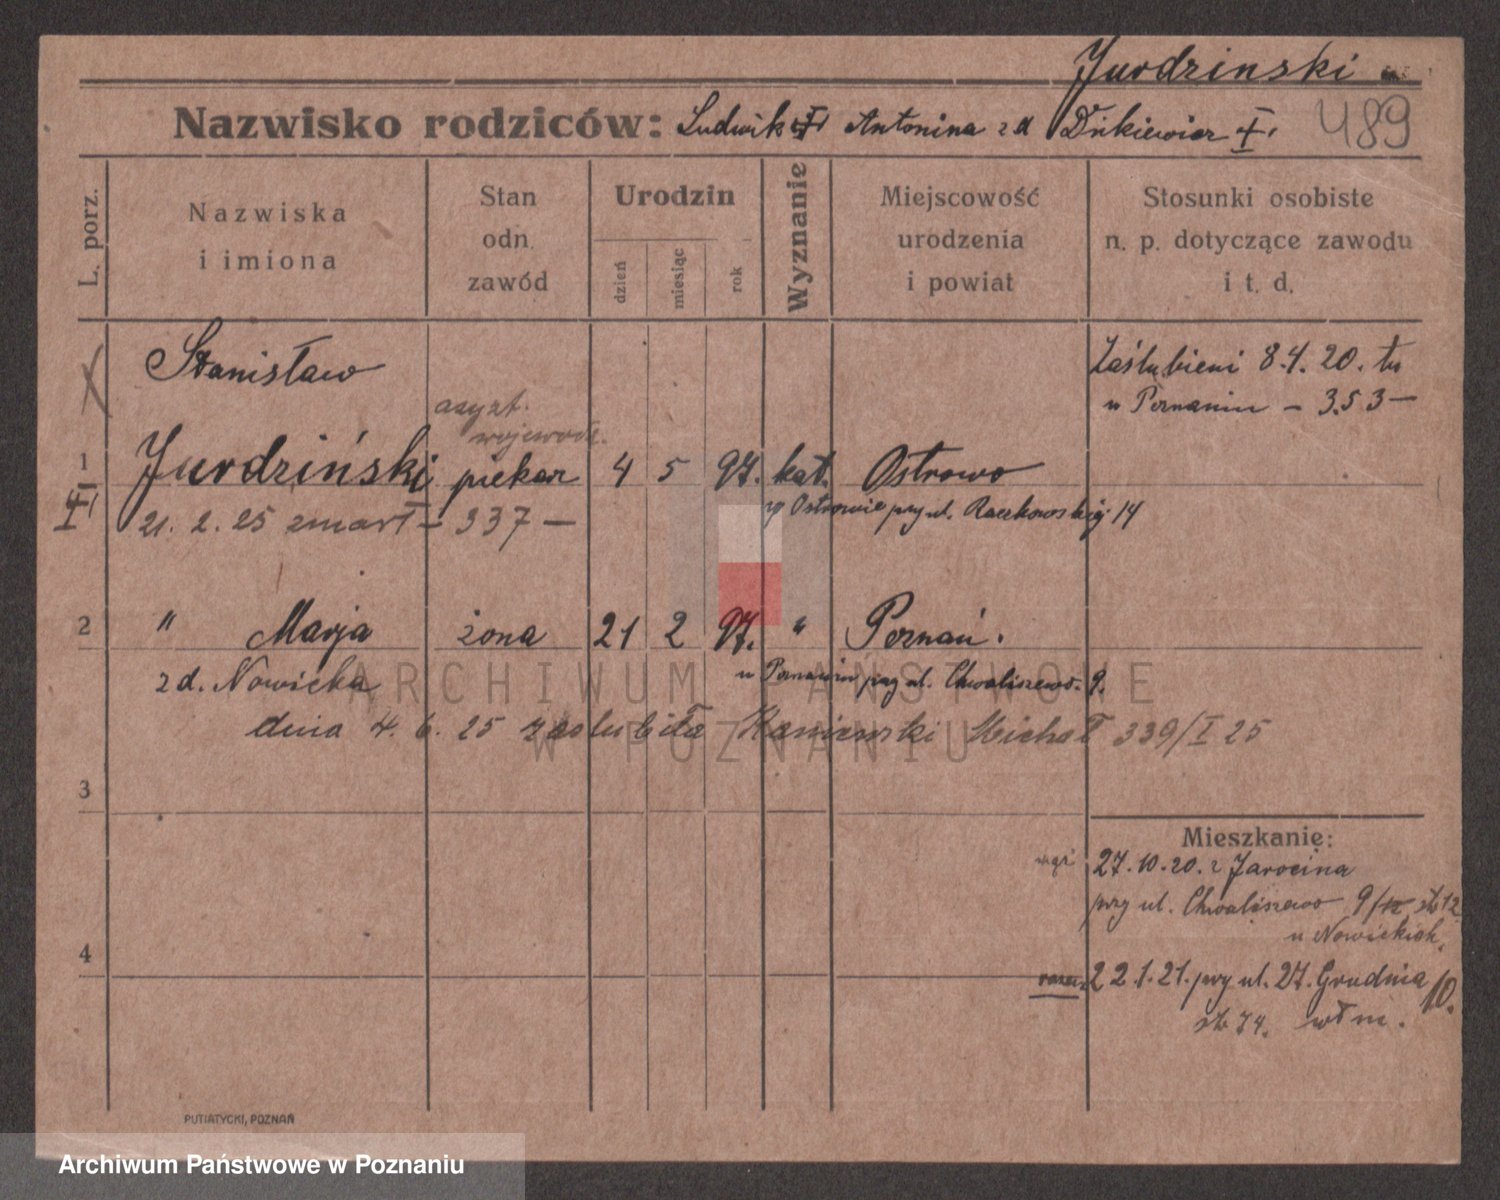 Jurdzinski
Nazwisko rodziców: Ludwik Antonina z d
489
L. porz.
Nazwiska
i imiona
Stan
odn.
zawód
Urodzin
dzień
miesiąc
rok
Wyznanie
Miejscowość
urodzenia
i powiat
Stosunki osobiste
n. p. dotyczące zawodu
i t. d.
Stanisław
Zaślubieni 8.4.20. tu
w Poznaniu – 353 –
asyst.
wojewódz.
1 Jurdziński piekarz 4 5 97. kat. Ostrowo
w Ostrowie przy ul. Raszkowskiej 14
21. 2. 25 zmarł – 337 –
2 " Marja żona 21 2 97. " Poznań.
z d. Nowicka
w Poznaniu przy ul. Chwaliszewo. 9.
dnia 4. 6. 25 zaślubiła Michał 339/I 25
3
Mieszkanie:
27.10.20. z Jarocina
przy ul. Chwaliszewo 9/ 12
u Nowickich.
razem 22.1.21. przy ul. 27. Grudnia 10.
74. własn.
4
PUTIATYCKI, POZNAŃ
ARCHIWUM PAŃSTWOWE
W POZNANIU
Archiwum Państwowe w Poznaniu